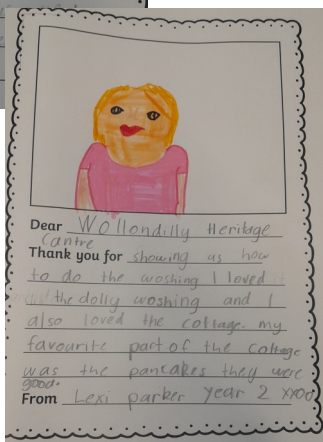 Dear Wollondilly Heritage
Cantre
Thank you for showing us how
to do the woshing I loved it
the dolly woshing and I
also loved the cottage. my
favourite part of the cottage
was the pancakes they were
good.
From Lexi parker year 2 xxoo